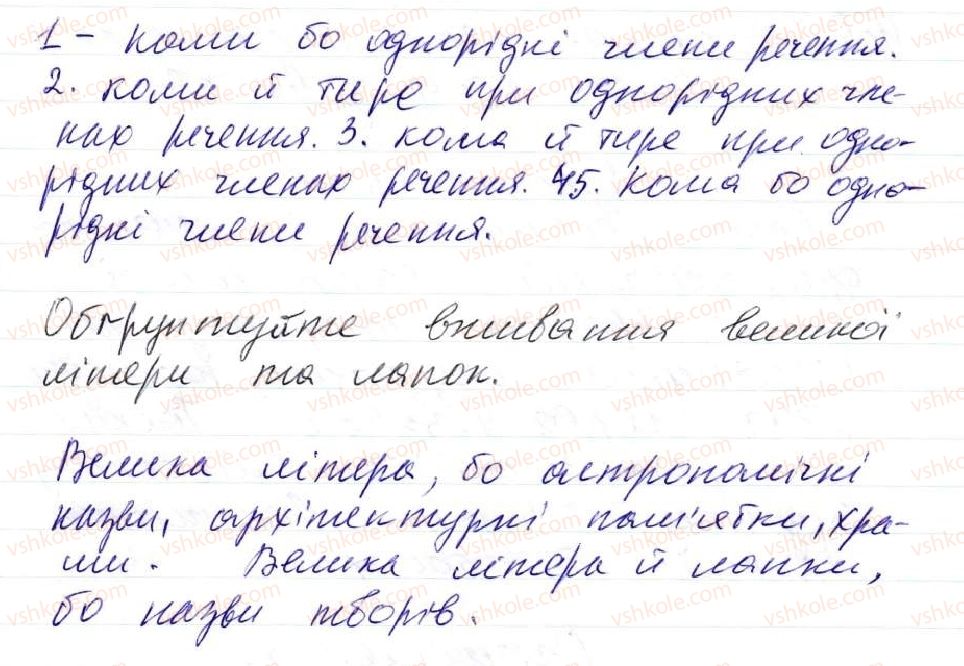 1 - коми бо однорідні члени речення.
2. коми й тире при однорідних чле-
нах речення. 3. кома й тире при одно-
рідних членах речення. 45. кома бо одно-
рідні члени речення.
Обґрунтуйте вживання великої
літери та лапок.
Велика літера, бо астрономічні
назви, архітектурні пам'ятки, хра-
ми. Велика літера й лапки,
бо назви творів.